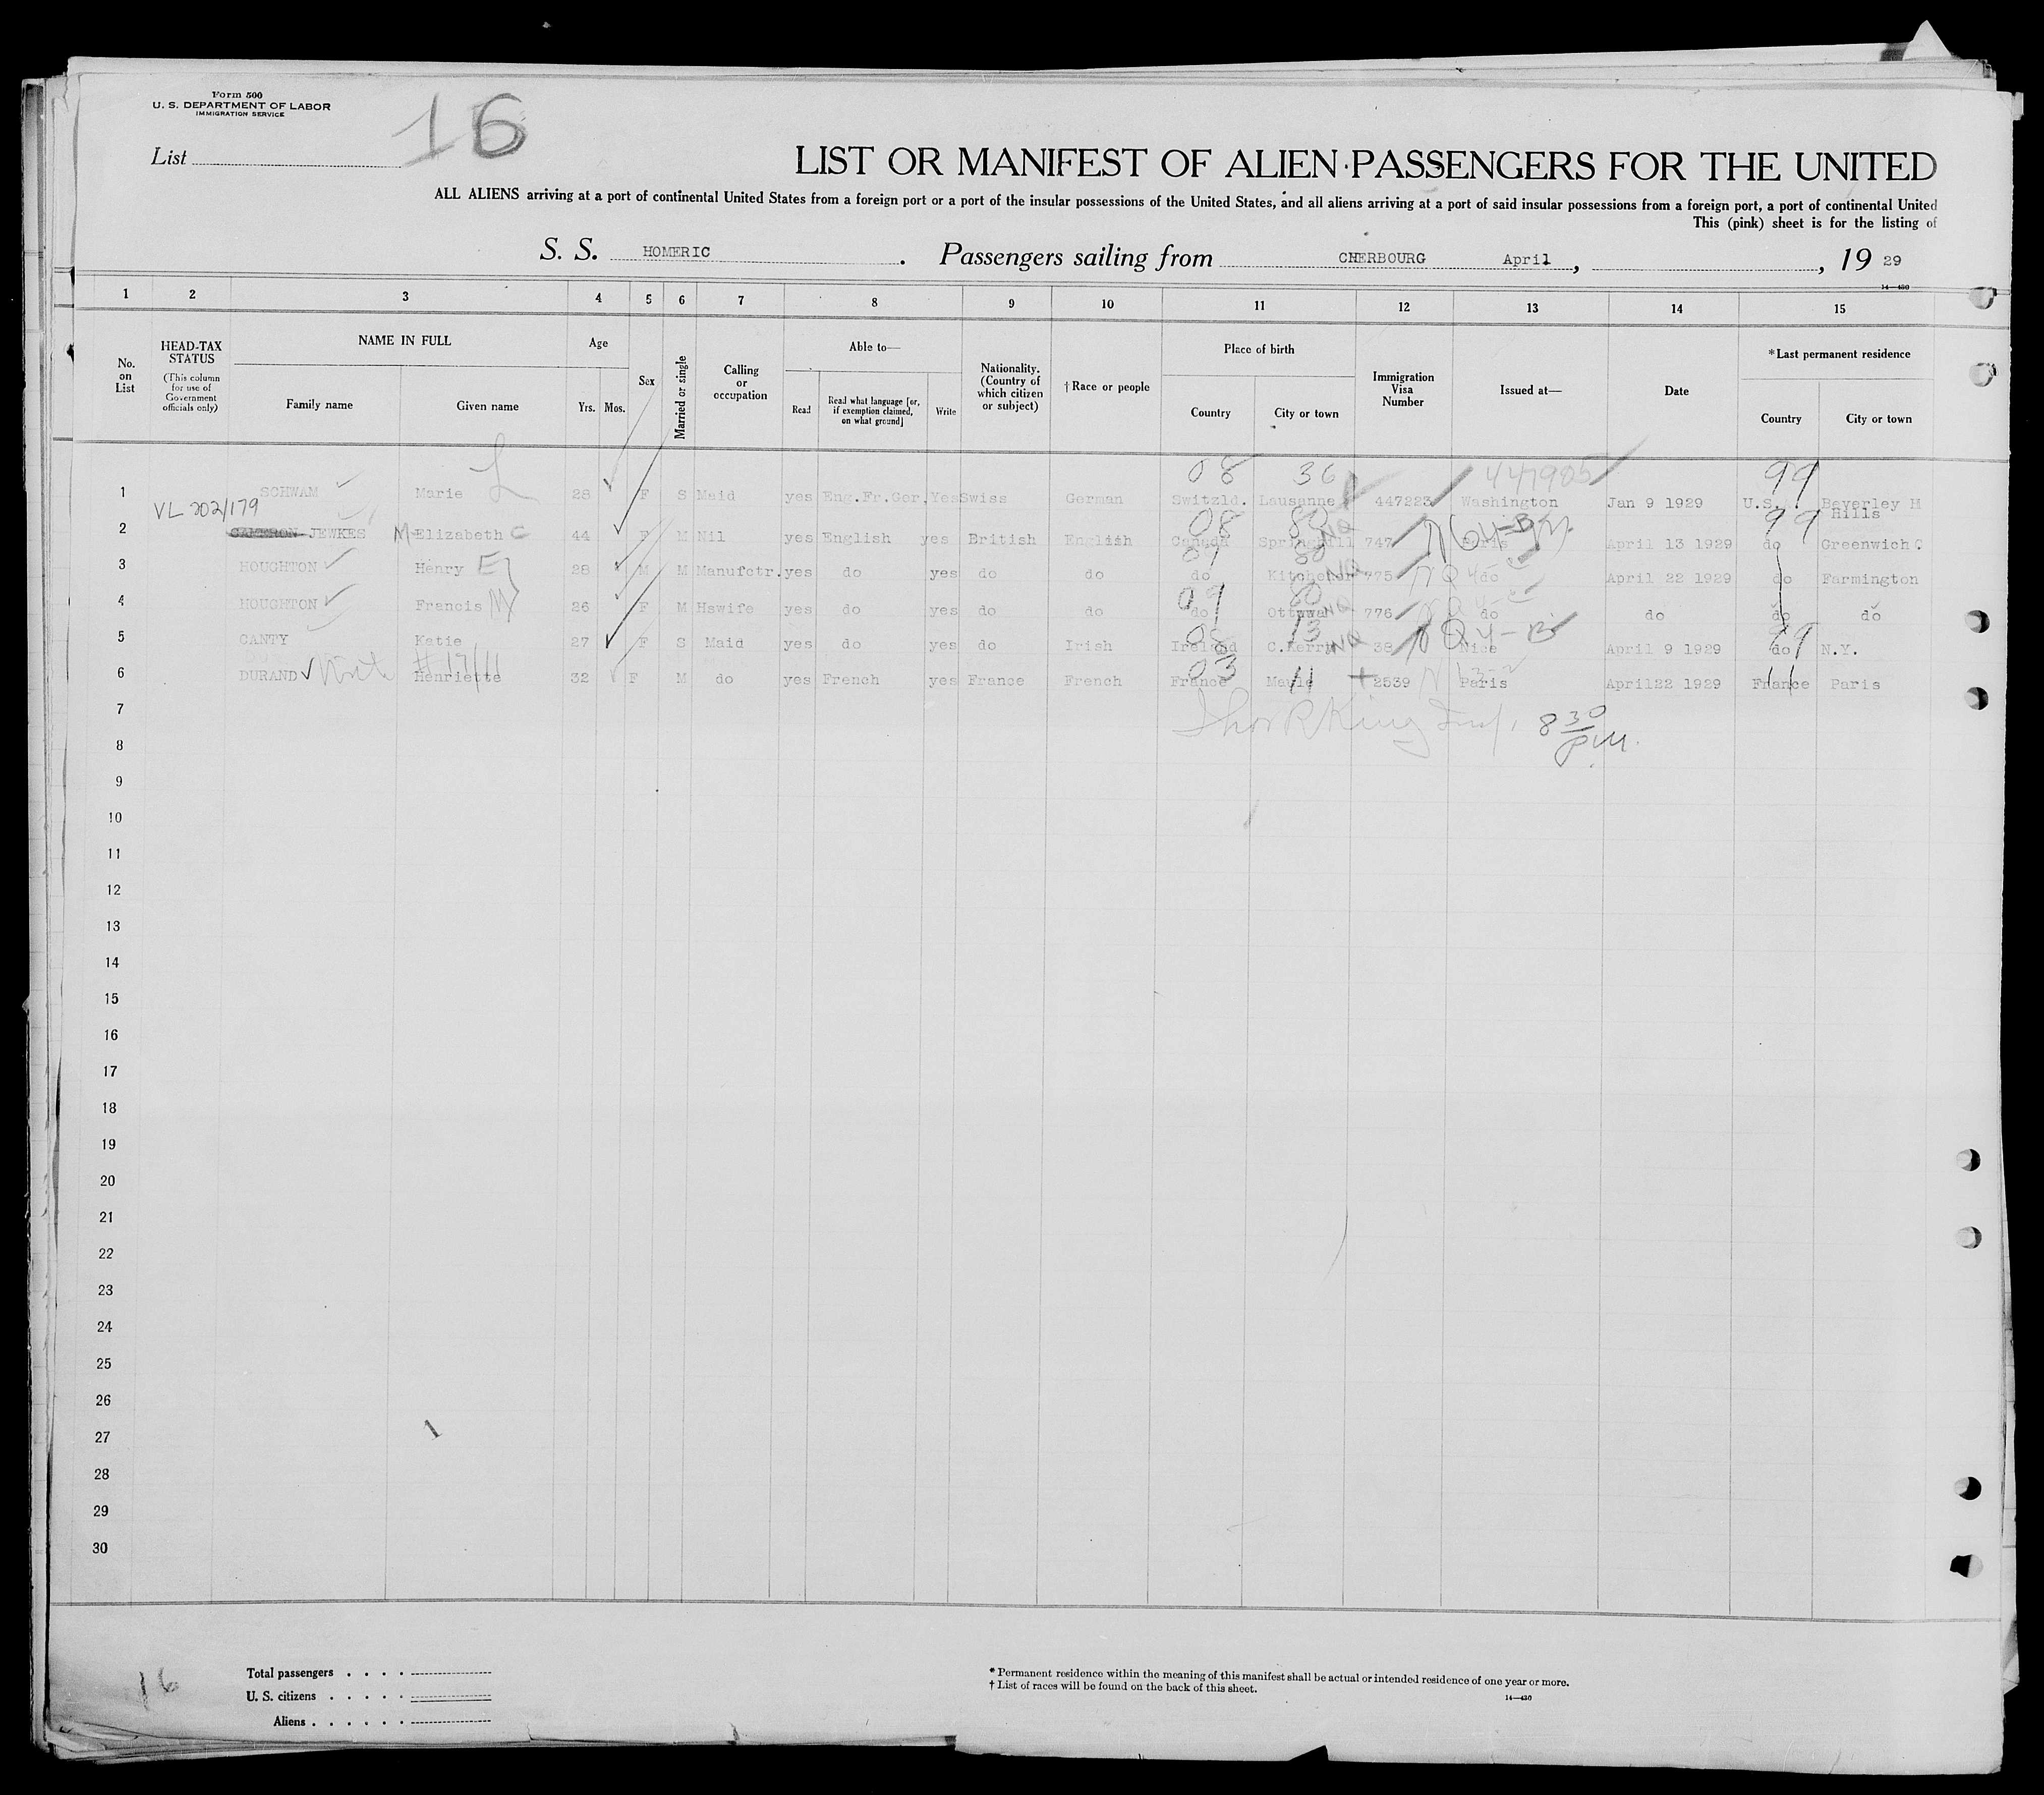 Form 500
U. S. DEPARTMENT OF LABOR
IMMIGRATION SERVICE
16
List
LIST OR MANIFEST OF ALIEN PASSENGERS FOR THE UNITED
ALL ALIENS arriving at a port of continental United States from a foreign port or a port of the insular possessions of the United States, and all aliens arriving at a port of said insular possessions from a foreign port, a port of continental United
This (pink) sheet is for the listing of
S. S. HOMERIC. Passengers sailing from CHERBOURG April, , 19 29
14—430
1 2 3 4 5 6 7 8 9 10 11 12 13 14 15
No. on List
HEAD-TAX STATUS
(This column for use of Government officials only)
NAME IN FULL
Family name Given name
Age
Yrs. Mos.
Sex
Married or single
Calling or occupation
Able to—
Read Read what language [or, if exemption claimed, on what ground] Write
Nationality. (Country of which citizen or subject)
† Race or people
Place of birth
Country City or town
Immigration Visa Number
Issued at—
Date
* Last permanent residence
Country City or town
08 36 447905 99
1 SCHWAM Marie L 28 F S Maid yes Eng.Fr.Ger. Yes Swiss German Switzld. Lausanne 447223 Washington Jan 9 1929 U.S. Beverley H
Hills
VL 202/179
08 80 99
2 CAMERON JEWKES M Elizabeth C 44 F M Nil yes English yes British English Canada Springhill 747 Paris April 13 1929 do Greenwich C
3 HOUGHTON Henry E 28 M M Manufctr. yes do yes do do do Kitchener 775 do April 22 1929 do Farmington
09 80
4 HOUGHTON Francis M 26 F M Hswife yes do yes do do do Ottawa 776 do do do do
08 13 99
5 CANTY Katie 27 F S Maid yes do yes do Irish Ireland C.Kerry 38 Nice April 9 1929 do N.Y.
03 11 11
6 DURAND Henriette 32 F M do yes French yes France French France 2539 Paris April22 1929 France Paris
7 8 30 PM.
8
9
10
11
12
13
14
15
16
17
18
19
20
21
22
23
24
25
26
27
28
29
30
16
Total passengers . . . .
U. S. citizens . . . . .
Aliens . . . . . .
* Permanent residence within the meaning of this manifest shall be actual or intended residence of one year or more.
† List of races will be found on the back of this sheet.
14—430